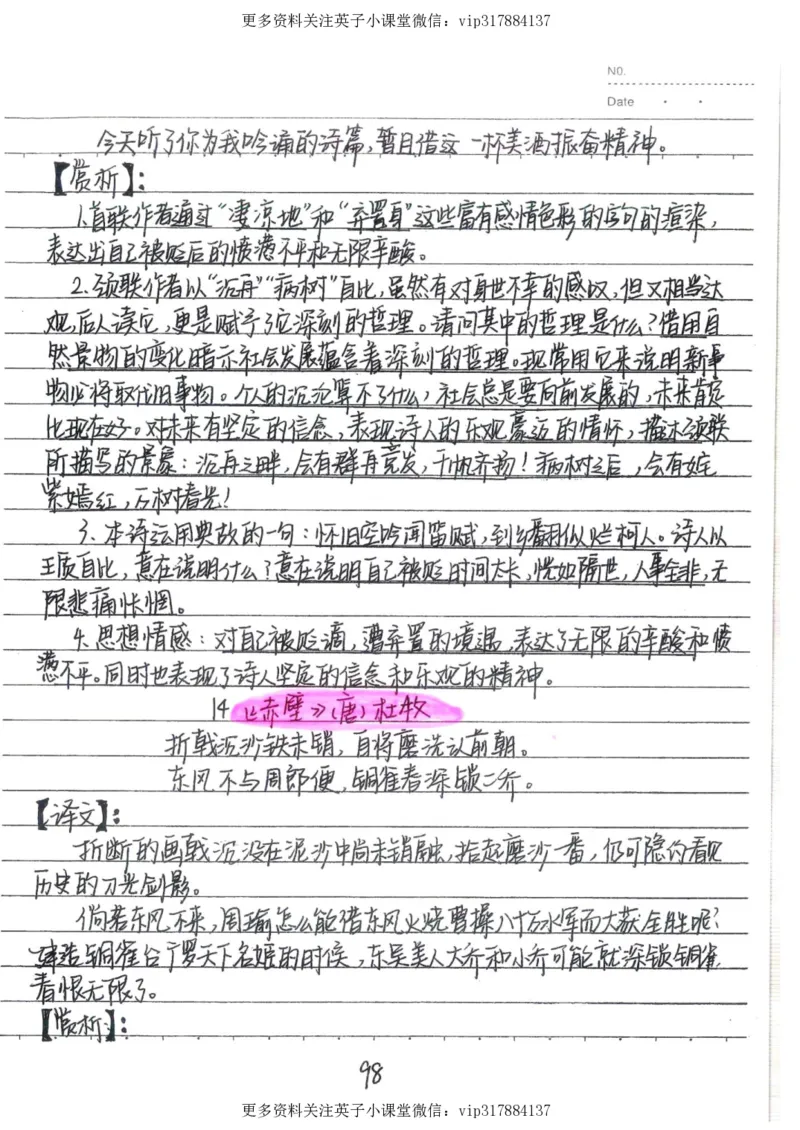 更多资料关注英子小课堂微信：vip317884137
NO.
Date
今天听了你为我吟诵的诗篇，暂且借这一杯美酒振奋精神。
【赏析】：
1.首联作者通过“凄凉地”和“弃置身”这些富有感情色彩的字句的渲染，
表达出自己被贬后的愤懑不平和无限辛酸。
2.颈联作者以“沉舟”“病树”自比，虽然有对身世不幸的感叹，但又相当达
观，后人读它，更是赋予了它深刻的哲理。请问其中的哲理是什么？借用自
然景物的变化暗示社会发展蕴含着深刻的哲理。现常用它来说明新事
物必将取代旧事物。个人的沉沦算不了什么，社会总是要向前发展的，未来肯定
比现在好。对未来有坚定的信念，表现诗人的乐观豪迈的情怀，描述颈联
所描写的景象：沉舟之畔，会有群舟竞发，千帆齐扬！病树之后，会有姹
紫嫣红，万树春光！
3.本诗运用典故的一句：怀旧空吟闻笛赋，到乡翻似烂柯人。诗人以
王质自比，意在说明什么？意在说明自己被贬时间太长，恍如隔世，人事全非，无
限悲痛怅惘。
4.思想情感：对自己被贬谪，遭弃置的境遇，表达了无限的辛酸和愤
懑不平。同时也表现了诗人坚定的信念和乐观的精神。
14《赤壁》（唐）杜牧
折戟沉沙铁未销，自将磨洗认前朝。
东风不与周郎便，铜雀春深锁二乔。
【译文】：
折断的画戟沉没在泥沙中尚未销融，拾起磨沙一番，仍可隐约看见
历史的刀光剑影。
倘若东风不来，周瑜怎么能借东风火烧曹操八十万水军而大获全胜呢？
建造铜雀台广罗天下名姬的时候，东吴美人大乔和小乔可能就深锁铜雀，
春恨无限了。
【赏析】：
98
更多资料关注英子小课堂微信：vip317884137